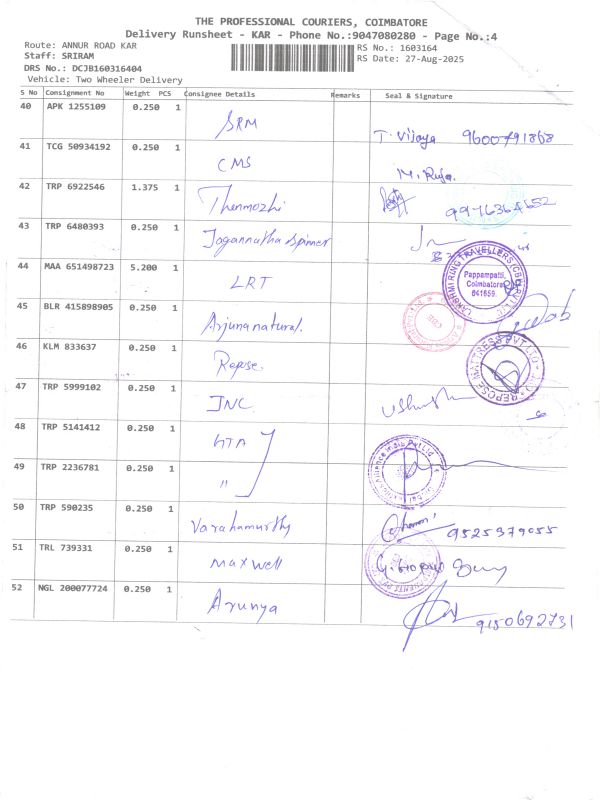 THE PROFESSIONAL COURIERS, COIMBATORE
Delivery Runsheet - KAR - Phone No.:9047080280 - Page No.:4
Route: ANNUR ROAD KAR
RS No.: 1603164
Staff: SRIRAM
RS Date: 27-Aug-2025
DRS No.: DCJB160316404
Vehicle: Two Wheeler Delivery
S No Consignment No Weight PCS Consignee Details Remarks Seal & Signature
40 APK 1255109 0.250 1 SRM T. Vijaya 9600791868
41 TCG 50934192 0.250 1 CMS M. Roja.
42 TRP 6922546 1.375 1 Thenmozhi 9976364652
43 TRP 6480393 0.250 1 Jagannatha Spinner
44 MAA 651498723 5.200 1 LRT
LAKSHMI RING TRAVELLERS (CBE) PVT LTD
Pappampatti,
Coimbatore
641659.
45 BLR 415898905 0.250 1 Arjuna natural.
46 KLM 833637 0.250 1 Repose.
REPOSE MATTRESS PVT LTD
47 TRP 5999102 0.250 1 JNC.
48 TRP 5141412 0.250 1 HTA
49 TRP 2236781 0.250 1 "
Alliance India Pvt Ltd
50 TRP 590235 0.250 1 Varahamurthy 9525379055
51 TRL 739331 0.250 1 Maxwell
52 NGL 200077724 0.250 1 Arunya 9150692731